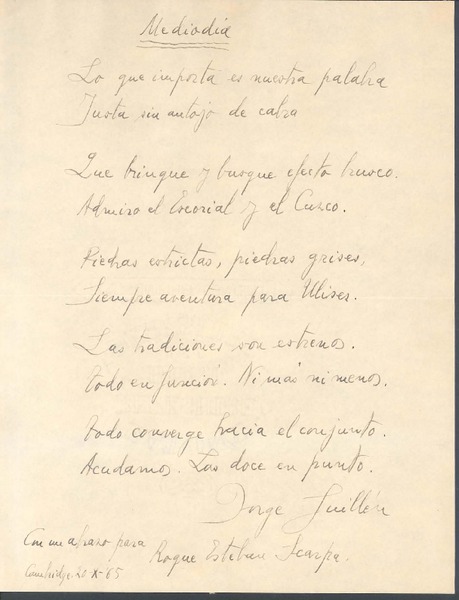 Mediodía
Lo que importa es nuestra palabra
Justa sin antojo de cabra
Que brinque y busque efecto brusco.
Admiro el Escorial y el Cuzco.
Piedras estrictas, piedras grises,
Siempre aventura para Ulises.
Las tradiciones son estrenos.
Todo en función. Ni más ni menos.
Todo converge hacia el conjunto.
Acudamos. Las doce en punto.
Jorge Guillén
Con un abrazo para Roque Esteban Scarpa.
Cambridge. 20-X-65